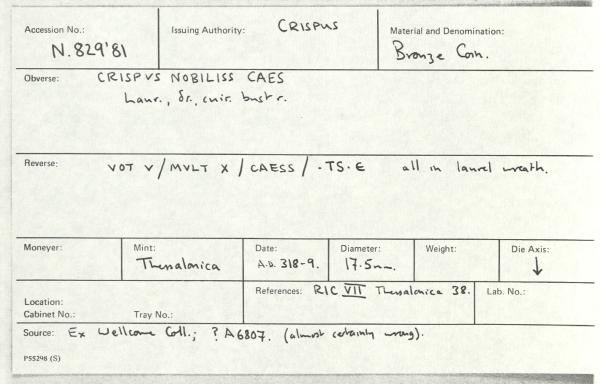 Accession No.: N.829'81
Issuing Authority: CRISPUS
Material and Denomination: Bronze Coin.
Obverse: CRISPVS NOBILISS CAES
Laur., dr., cuir. bust r.
Reverse: VOT V/MVLT X/CAESS/·TS·E all in laurel wreath.
Moneyer:
Mint: Thessalonica
Date: A.D. 318-9.
Diameter: 17.5mm.
Weight:
Die Axis: ↓
Location:
Cabinet No.: Tray No.:
References: RIC VII Thessalonica 38.
Lab. No.:
Source: Ex Wellcome Coll.; ? A6807. (almost certainly wrong).
P55298 (S)